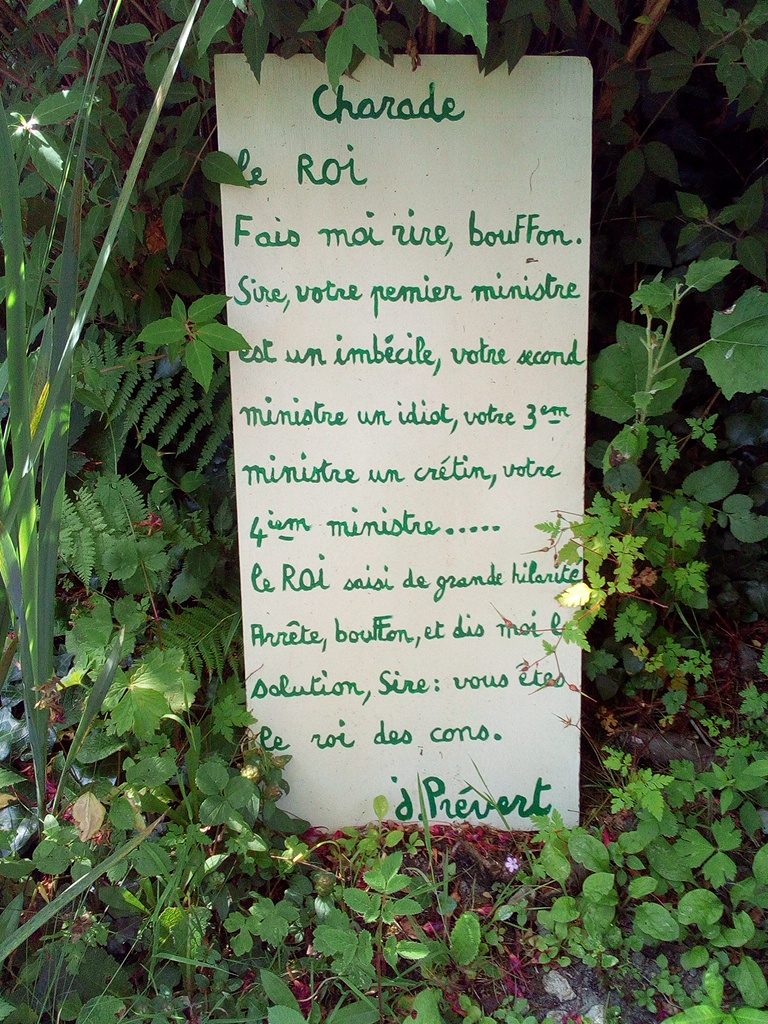 Charade
le ROI
Fais moi rire, bouffon.
Sire, votre pemier ministre
est un imbécile, votre second
ministre un idiot, votre 3em
ministre un crétin, votre
4iem ministre.....
le ROI saisi de grande hilarité
Arrête, bouffon, et dis moi l
solution, Sire: vous êtes
le roi des cons.
J. Prévert